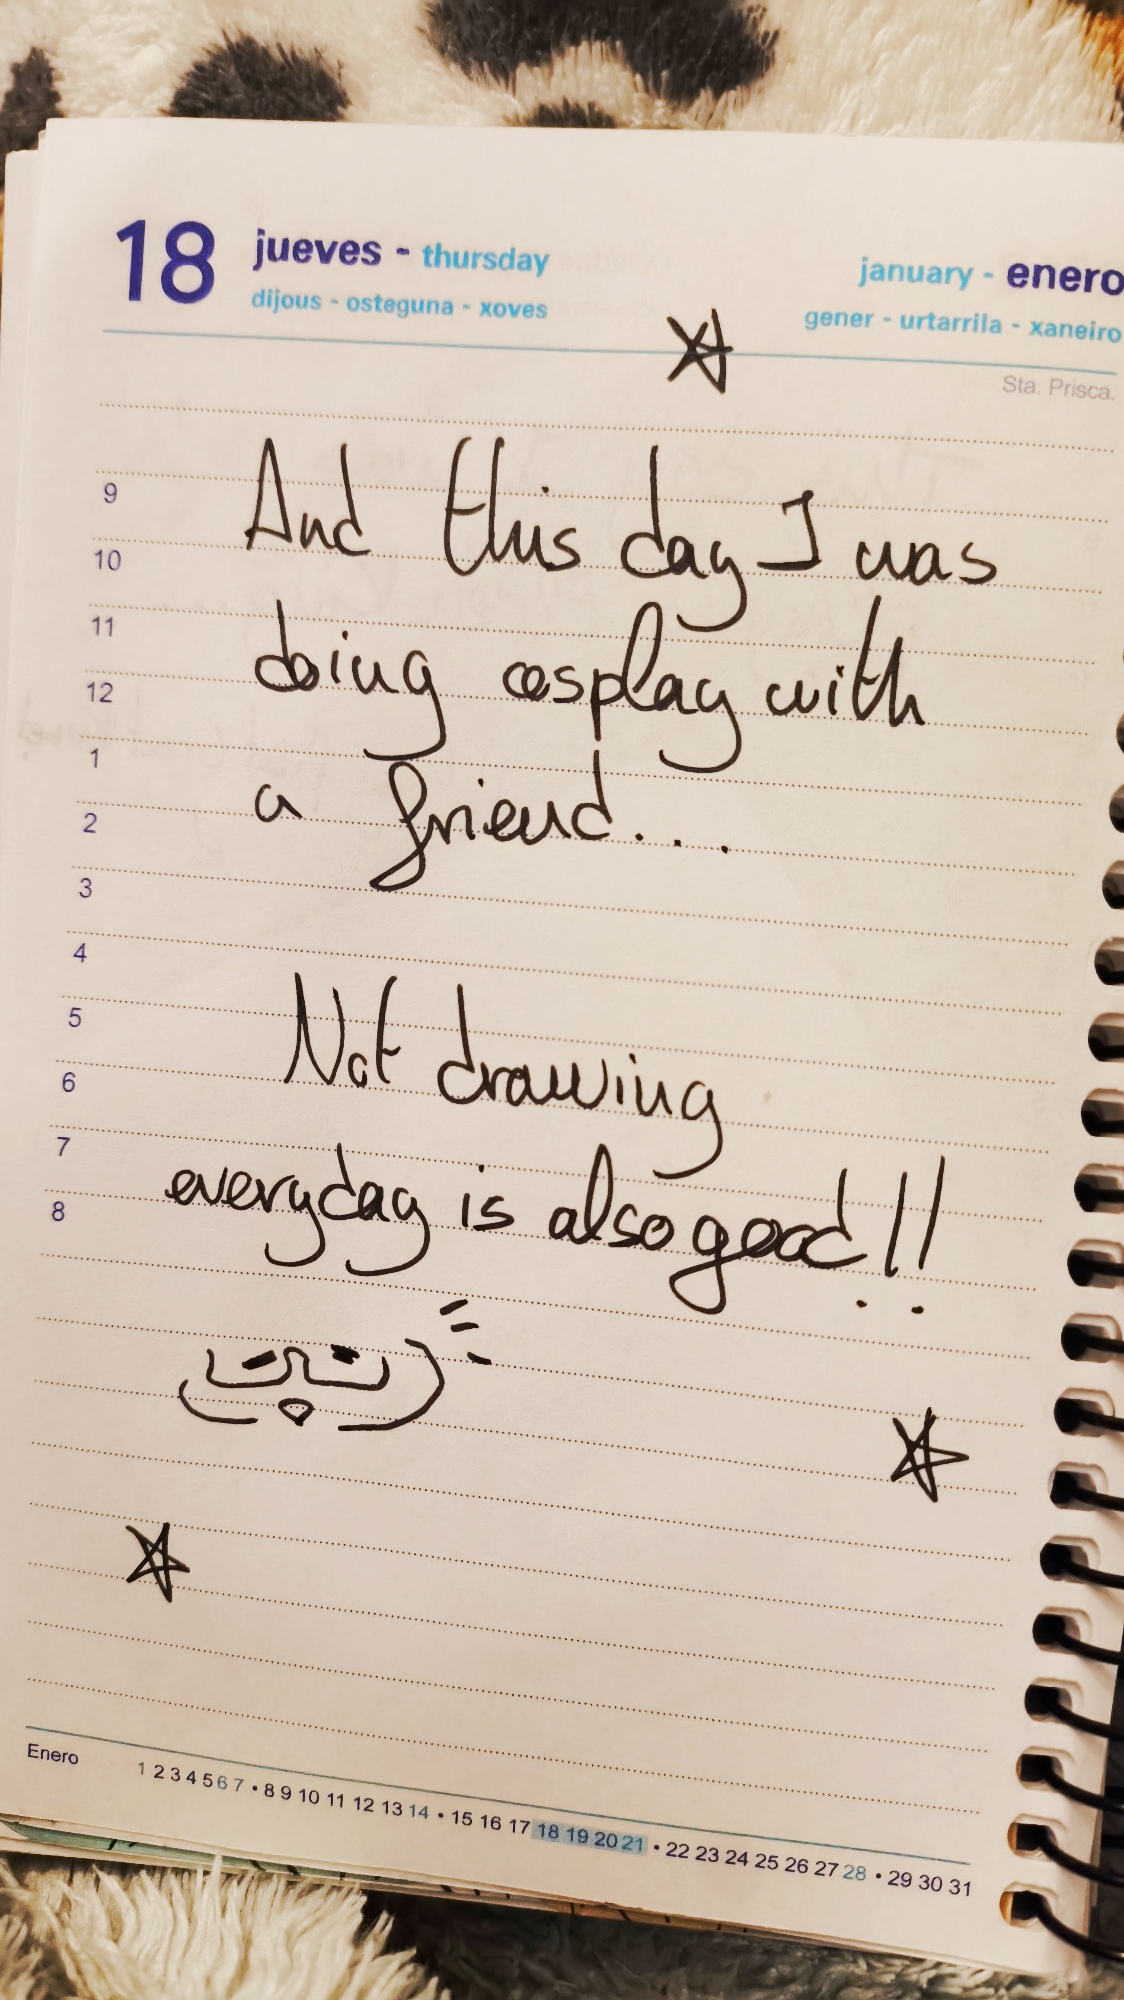 18 jueves - thursday january - enero
dijous - osteguna - xoves gener - urtarrila - xaneiro
Sta. Prisca.
And this day I was
doing cosplay with
a friend...
Not drawing
everyday is also good!!
9
10
11
12
1
2
3
4
5
6
7
8
Enero 1 2 3 4 5 6 7 • 8 9 10 11 12 13 14 • 15 16 17 18 19 20 21 • 22 23 24 25 26 27 28 • 29 30 31